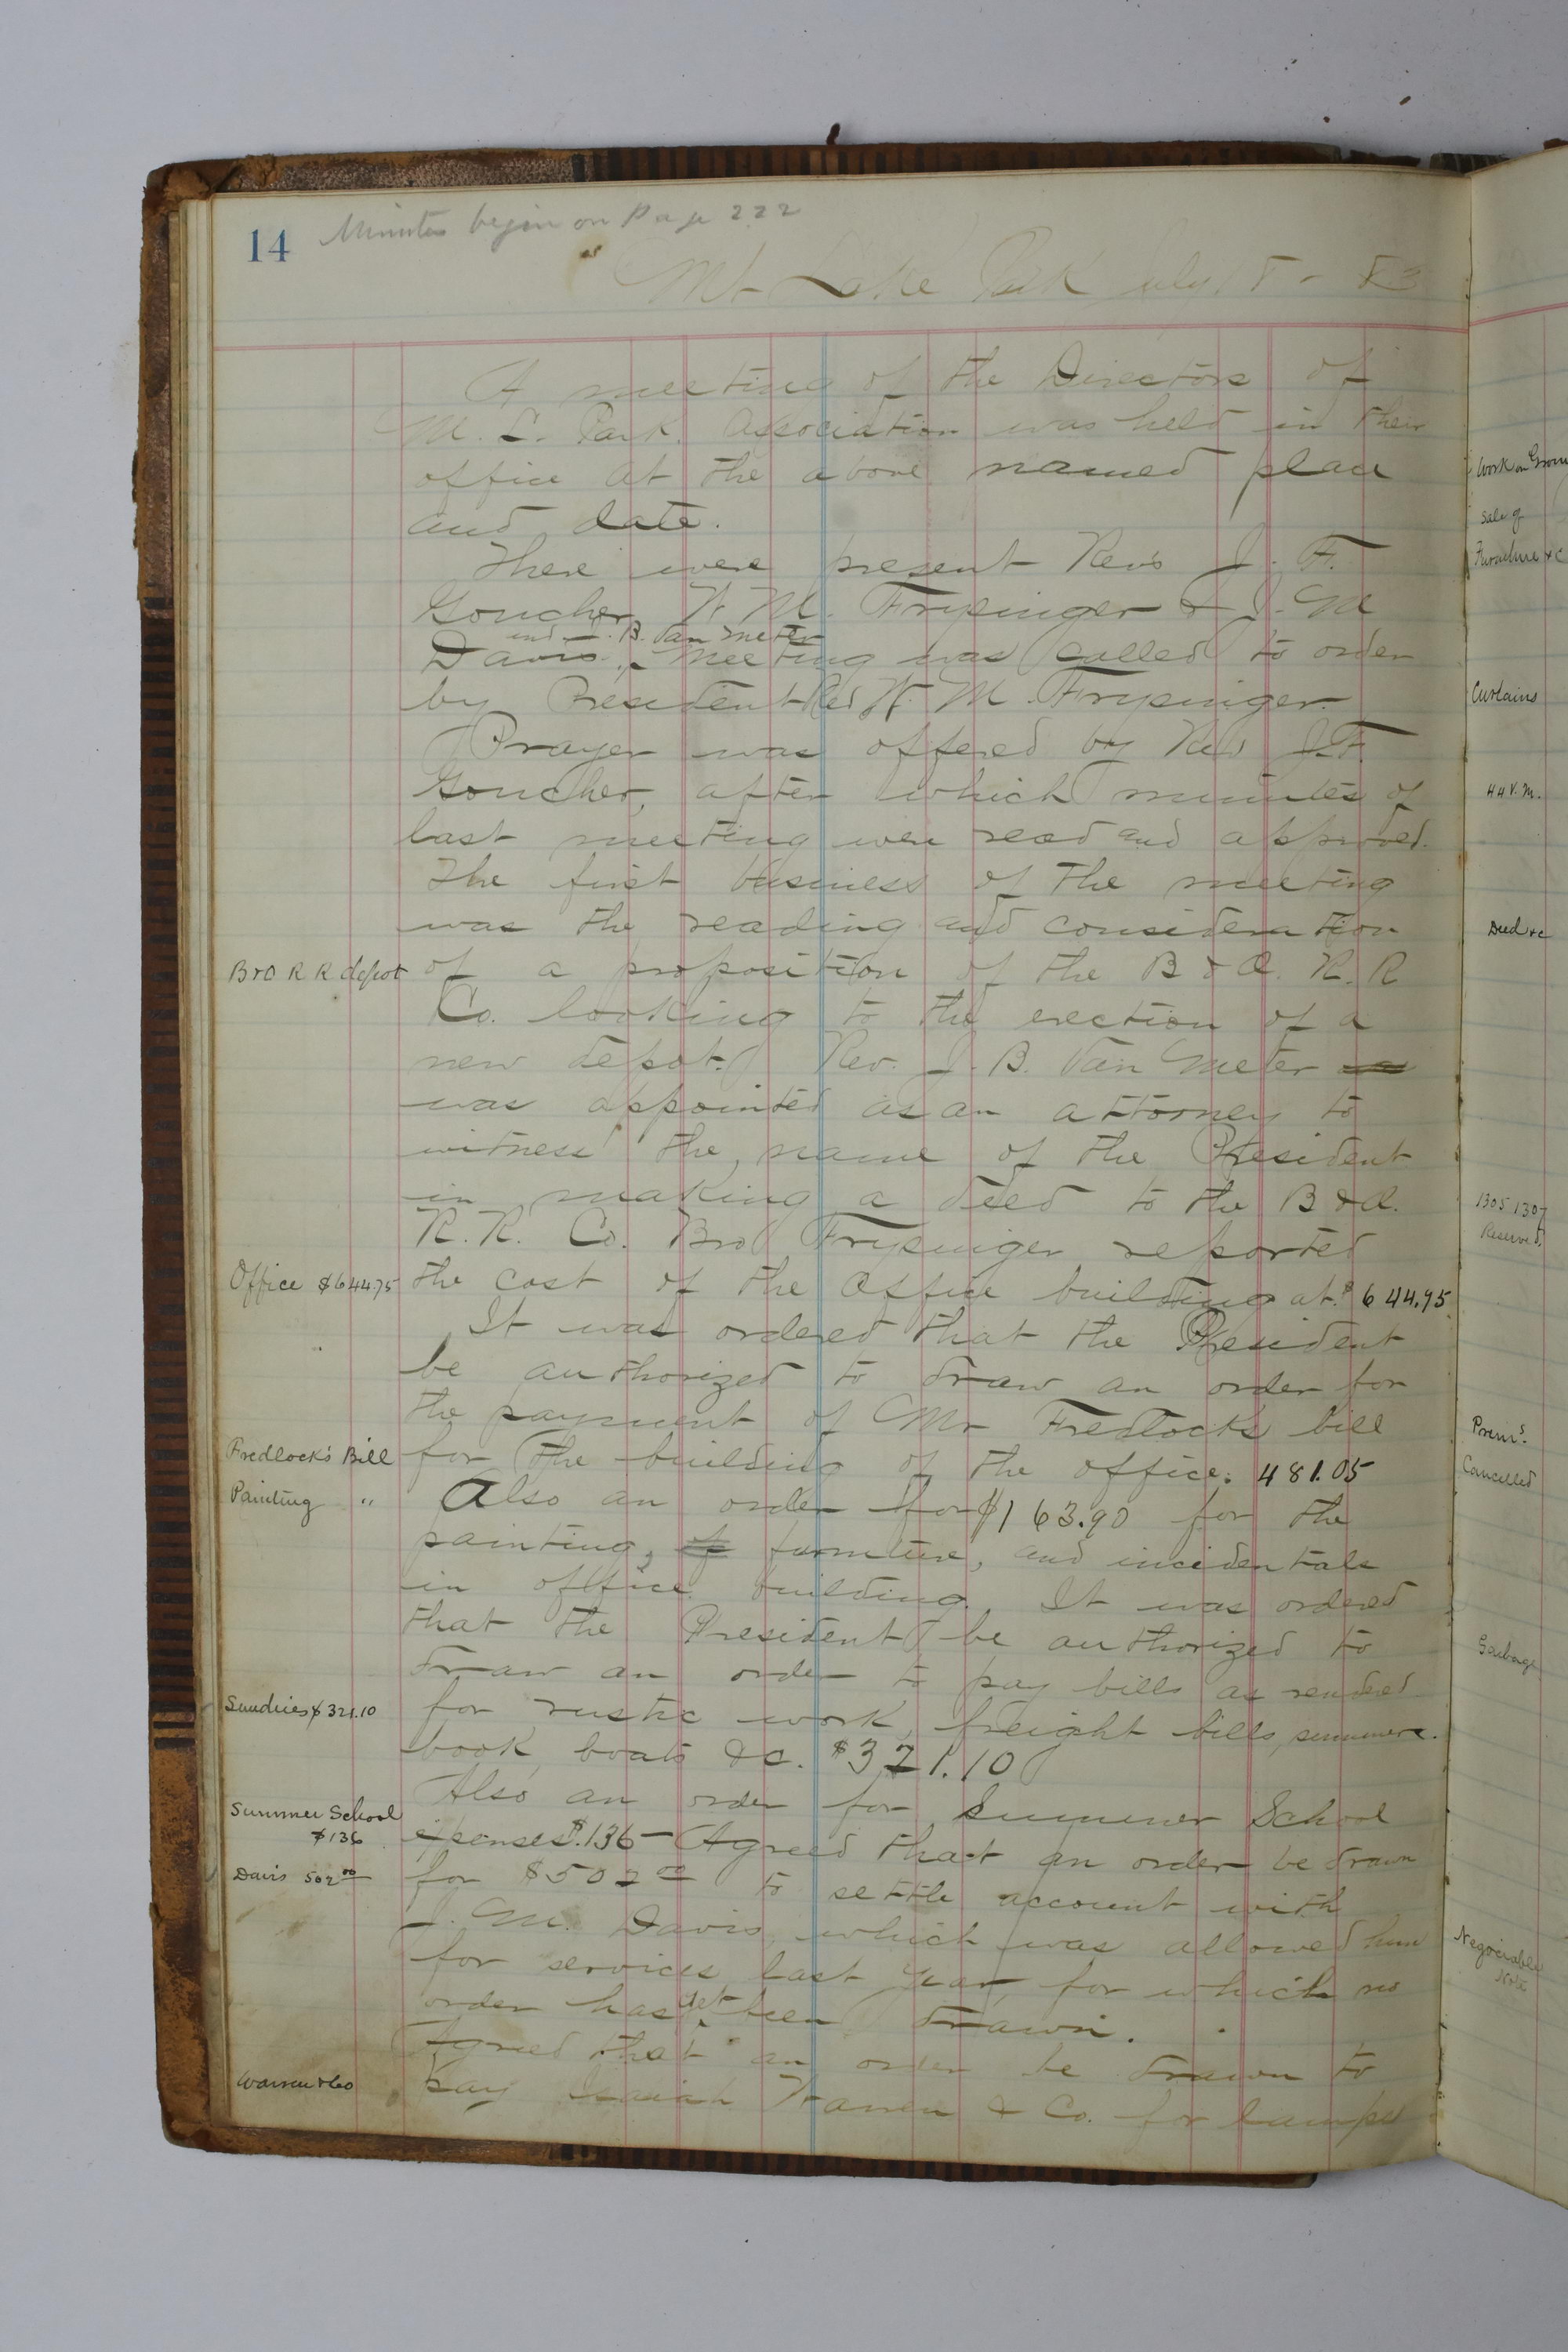 14 Minutes begin on Page 222
Mt Lake Park July 5 - 83
A meeting of the Directors of
M. L. Park Association was held in their
office at the above named place
and date.
There were present Revs J. F.
Goucher, W. M. Frysinger & J. M
and J. B. Van Meter
Davis. Meeting was called to order
by President Rev W. M. Frysinger.
Prayer was offered by Rev J. F.
Goucher, after which minutes of
last meeting were read and approved.
The first business of the meeting
was the reading and consideration
B&O R R depot of a proposition of the B & O. R. R
Co. looking to the erection of a
new depot. Rev. J. B. Van Meter
was appointed as an attorney to
witness the name of the President
in making a deed to the B & O.
R. R. Co. Bro Frysinger reported
Office $644.75 the cost of the Office building at $644.95
It was ordered that the President
be authorized to draw an order for
the payment of Mr Fredlock's bill
Fredlock's Bill for the building of the office. 481.05
Painting " Also an order for $163.90 for the
painting, furniture, and incidentals
in office building. It was ordered
that the President be authorized to
draw an order to pay bills as rendered
Sundries $321.10 for rustic work, freight bills,
book, boats &c. $321.10
Also an order for Summer School
Summer School
$136 expenses $136- Agreed that an order be drawn
Davis 502.00 for $502.00 to settle account with
J. M. Davis, which was allowed him
for services last year, for which no
order has yet been drawn.
Agreed that an order be drawn to
Warren & Co pay Isaiah Warren & Co. for lamps
Work on
Sale of
Furniture &c
Curtains
44 V. M.
Deed &c
1305 1307
Reserved
Prems.
Cancelled
Garbage
Negociable
Note